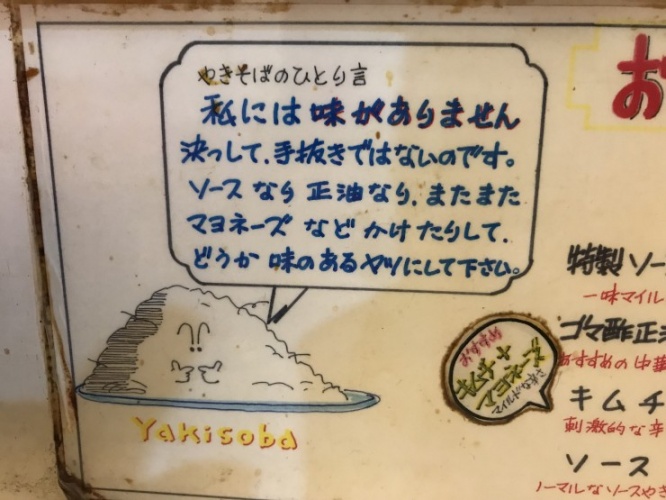 やきそばのひとり言
私には味がありません
決っして、手抜きではないのです。
ソースなら正油なり、またまた
マヨネーズなどかけたりして、
どうか味のあるヤツにして下さい。
Yakisoba
お
特製ソー
一味マイル
おすすめ
ゴマ酢正油
おすすめの中華
キムチ
刺激的な辛
ソース
ノーマルなソースやき